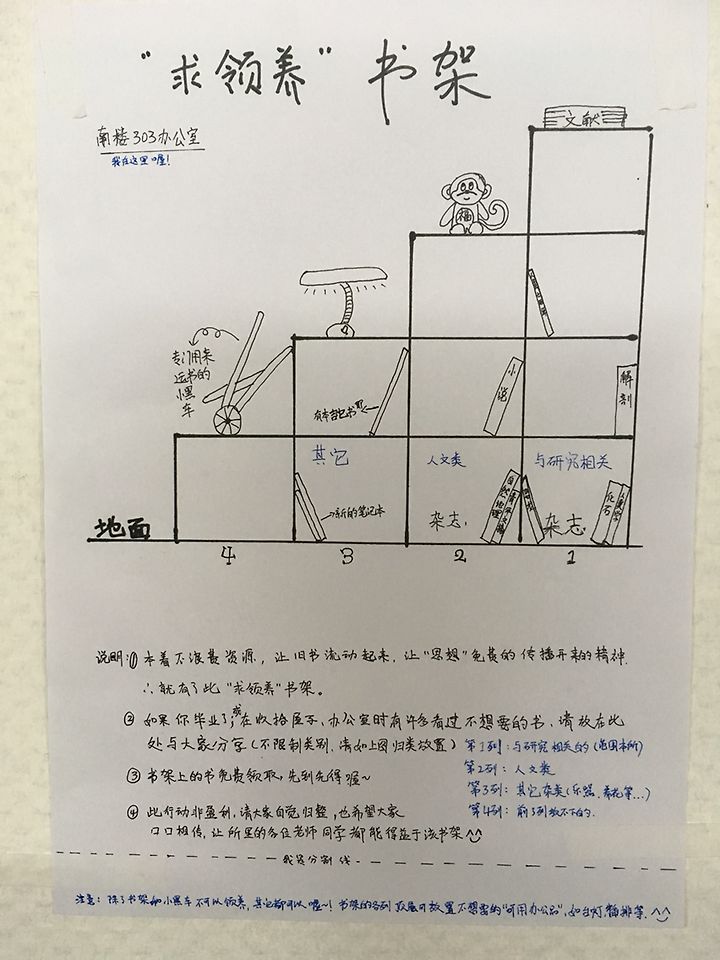 “求领养”书架
南楼303办公室
我在这里喔!
文献
福
专门用来
运书的
小黑
车
小说
解剖
其它
人文类
与研究相关
→新的笔记本
自然地理
杂志
化石
人类学
杂志
地面
4
3
2
1
说明:① 本着不浪费资源,让旧书流动起来,让“思想”免费的传播开来的精神.
∴就有了此“求领养”书架。
② 如果你毕业了,或在收拾屋子、办公室时有许多看过不想要的书,请放在此
处与大家分享(不限制类别,请如上图归类放置)
第1列:与研究相关的(范围本所)
第2列:人文类
③ 书架上的书免费领取,先到先得喔~
第3列:其它杂类(乐器、养花等...)
④ 此行动非盈利,请大家自觉归整,也希望大家
第4列:前3列放不下的.
口口相传,让所里的各位老师同学都能得益于该书架^^
我是分割线
注意:除了书架和小黑车不可以领养,其它都可以喔~!书架的各列顶层可放置不想要的“可用办公品”,如台灯,插排等.^^